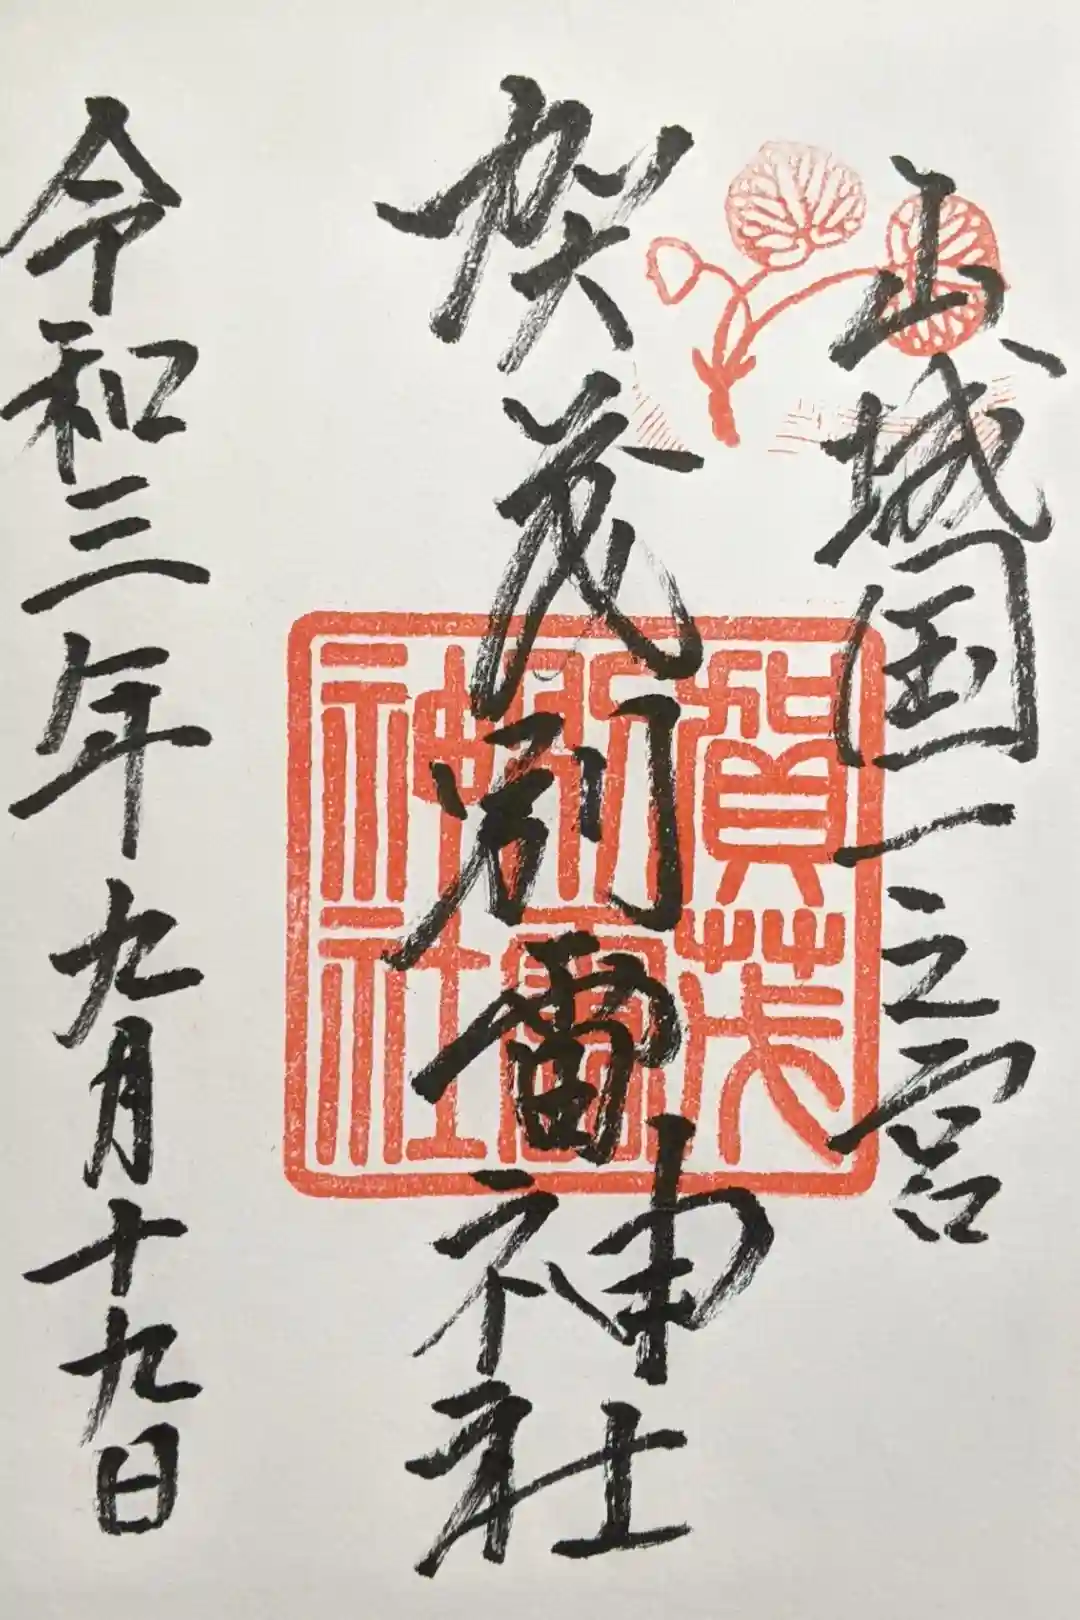 山城国一之宮
賀茂別雷神社
賀茂
別雷
神社
令和三年九月十九日